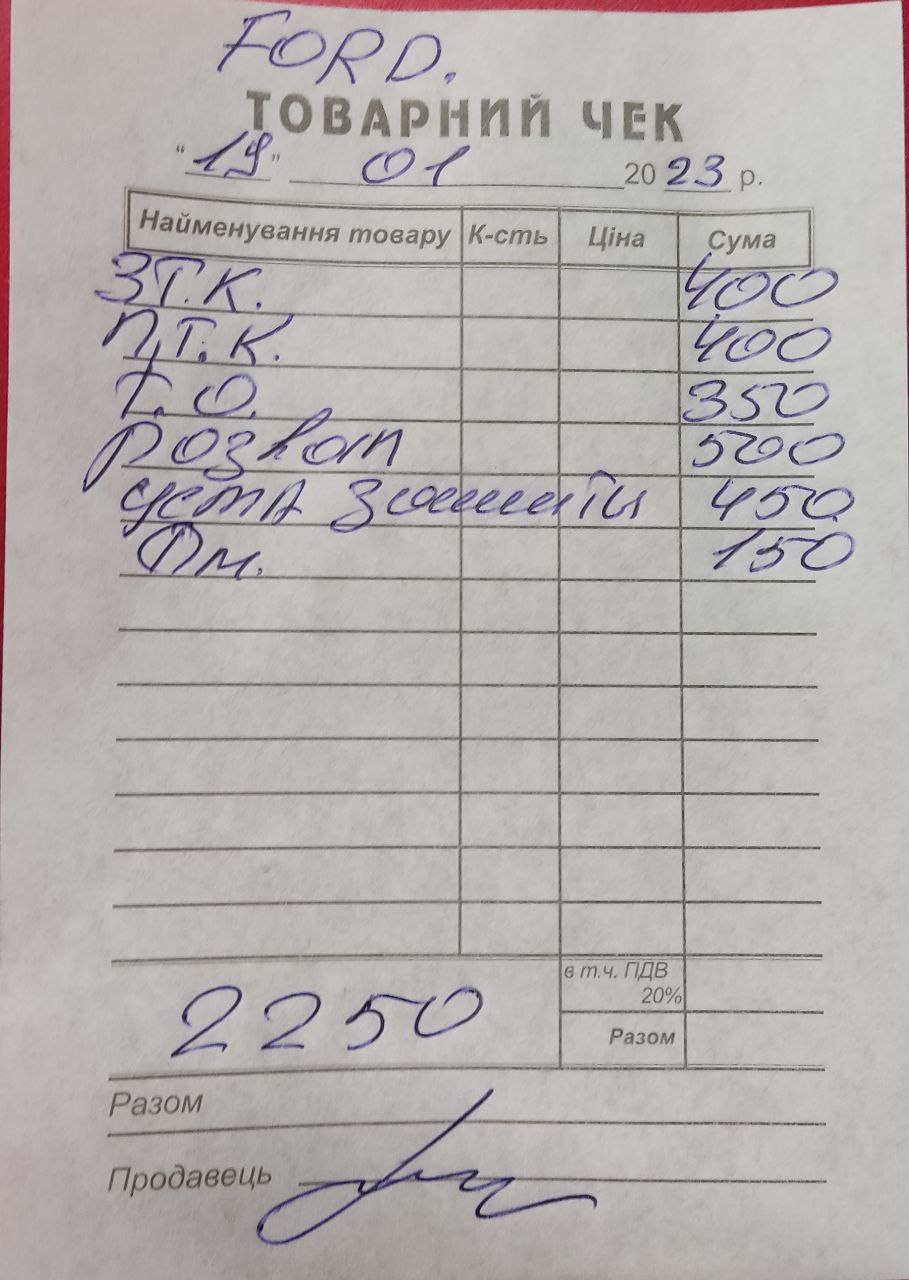 FORD.
ТОВАРНИЙ ЧЕК
"19" 01 2023 р.
Найменування товару К-сть Ціна Сума
ЗТ.К. 400
П.Т.К. 400
Т.О. 350
Розвал 500
450
Пм. 150
2250
в т.ч. ПДВ
20%
Разом
Разом
Продавець